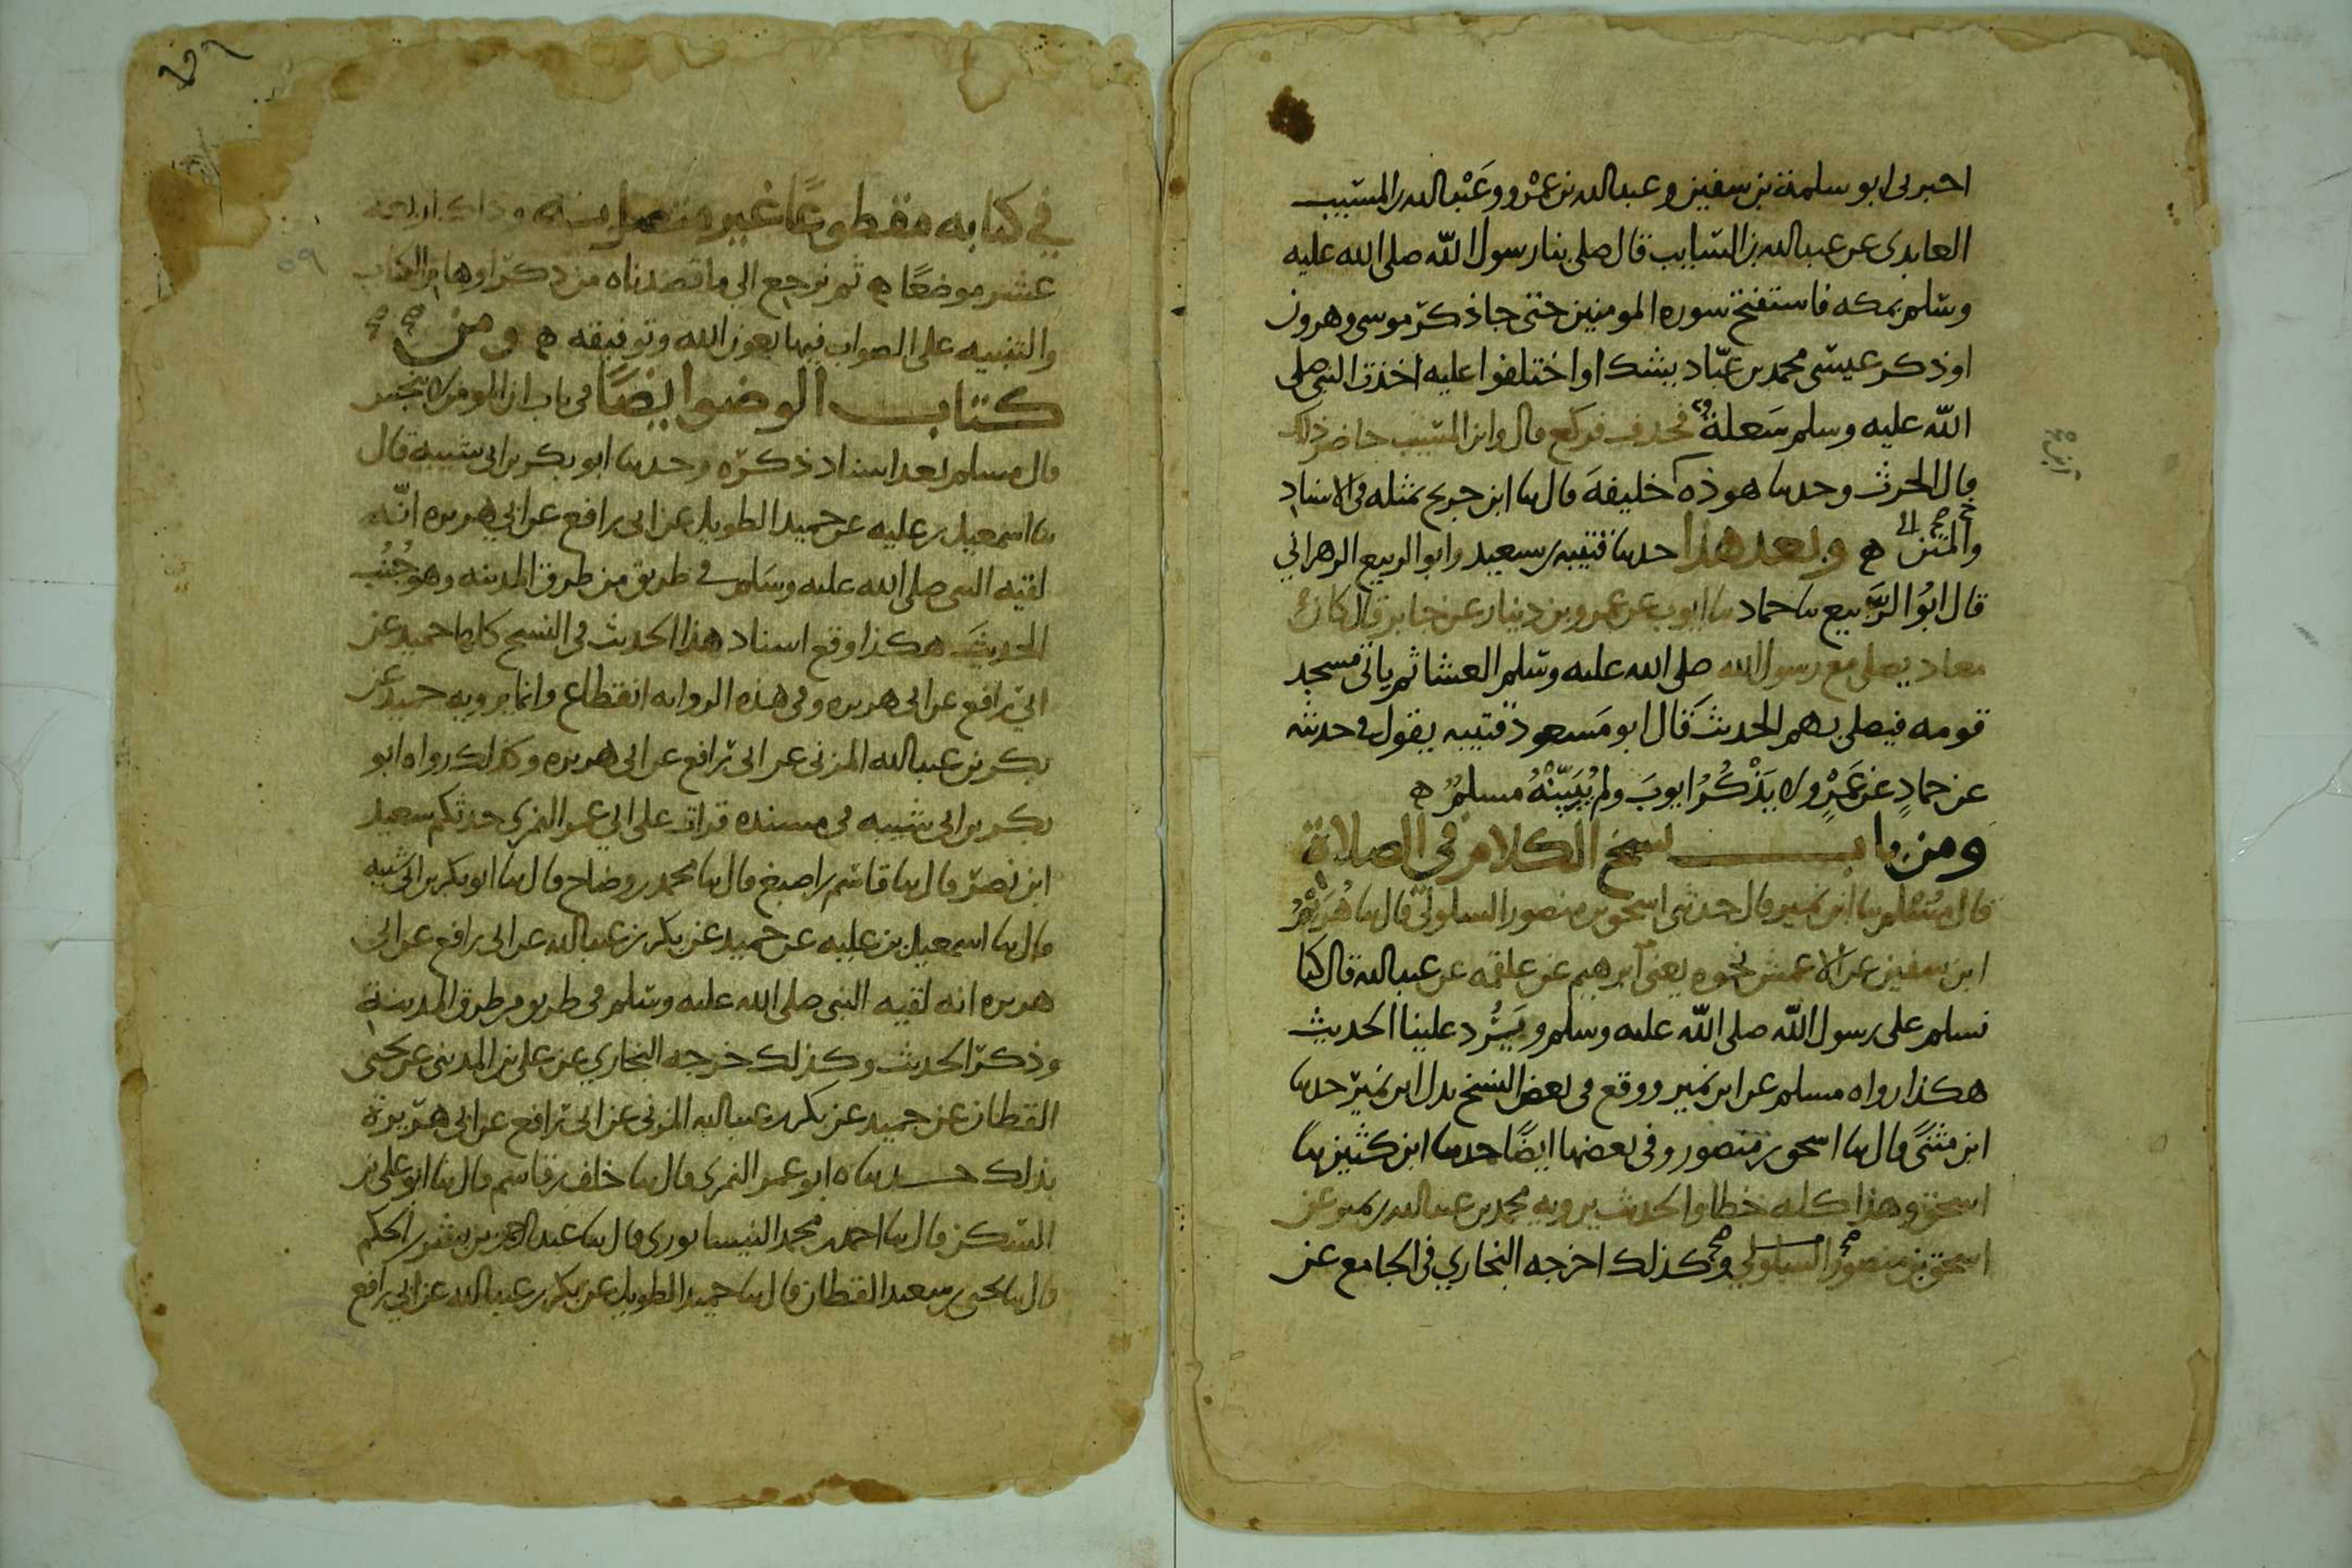 اخبرني ابو سلمة بن سفين وعبدالله بن عمرو وعبدالله بن المسيب
العابدى عن عبدالله بن السايب قال صلى بنا رسول الله صلى الله عليه
وسلم بمكه فاستفتح سوره المومنين حتى جا ذكر موسى وهرون
او ذكر عيسى محمد بن عباد يشك او اختلفوا عليه اخذت النبي صلى
الله عليه وسلم سَعلةٌ فحذف فركع قال وابن المسيب حاضر ذلك
قال الحرث وحدثنا هوذه خليفة قال نا ابن جريج بمثله في الاسناد
والمتن ه وبعد هذا حدثنا قتيبه بن سعيد وابو الربيع الزهراني
قال ابُو الربيع نا حماد نا ايوب عن عمرو بن دينار عن جابر قال كان
معاذ يصلي مع رسول الله صلى الله عليه وسلم العشا ثم ياتي مسجد
قومه فيصلي بهم الحديث قال ابو مَسعود قتيبه يقول في حديثه
عن حمادٍ عن عَمْرٍو لا يَذْكُرُ ايوبَ ولم يُبَيِّنْهُ مسلمٌ ه
ومن باب نسخ الكلام في الصلاة
قال مسلم نا ابن نمير قال حدثني اسحق بن منصور السلولي قال نا هُرَيْمُ
ابن سفين عن الاعمش نحوه يعني ابرهيم عن علقمه عن عبدالله قال كنا
نسلم على رسول الله صلى الله عليه وسلم ويَرُد علينا الحديث
هكذا رواه مسلم عن ابن نمير ووقع في بعض النسخ بدل ابن نمير حدثنا
ابن مثنىً قال نا اسحق بن منصور وفي بعضها ايضًا حدثنا ابن كثير نا
اسحق وهذا كله خطا والحديث يرويه محمد بن عبدالله بن نمير عن
اسحق بن منصور السلولي وكذلك اخرجه البخاري في الجامع عن
في كتابه مقطوعًا غير متصل وذلك اربعة
عشر موضعًا ه ثم نرجع الى ما قصدناه من ذكر اوهام الكتاب
والتنبيه على الصواب فيها بعون الله وتوفيقه ه ومن
كتاب الوضو ايضًا في باب ان المومن لا ينجس
قال مسلم بعد اسناد ذكره وحدثنا ابو بكر بن ابي شيبه قال
نا اسمعيل بن عليه عن حميد الطويل عن ابي رافع عن ابي هريره انه
لقيه النبي صلى الله عليه وسلم في طريق من طرق المدينه وهو جُنُب
الحديث هكذا وقع اسناد هذا الحديث في النسخ كلها حميد عن
ابي رافع عن ابي هريره وفي هذه الروايه انقطاع وانما يرويه حميد عن
بكر بن عبدالله المزني عن ابي رافع عن ابي هريره وكذلك رواه ابو
بكر بن ابي شيبه في مسنده قرات على ابي عمر النمري حدثكم سعيد
ابن نصر قال نا قاسم بن اصبغ قال نا محمد بن وضاح قال نا ابو بكر بن ابي شيبه
قال نا اسمعيل بن عليه عن حميد عن بكر بن عبدالله عن ابي رافع عن ابي
هريره انه لقيه النبي صلى الله عليه وسلم في طريق من طرق المدينة
وذكر الحديث وكذلك خرجه البخاري عن علي بن المديني عن يحيى
القطان عن حميد عن بكر بن عبدالله المزني عن ابي رافع عن ابي هريرة
بذلك حدثناه ابو عمر النمري قال نا خلف بن قاسم قال نا ابو علي بن
السكن قال نا احمد بن محمد النيسابوري قال نا عبدالرحمن بن بشر بن الحكم
قال نا يحيى بن سعيد القطان قال نا حميد الطويل عن بكر بن عبدالله عن ابي رافع